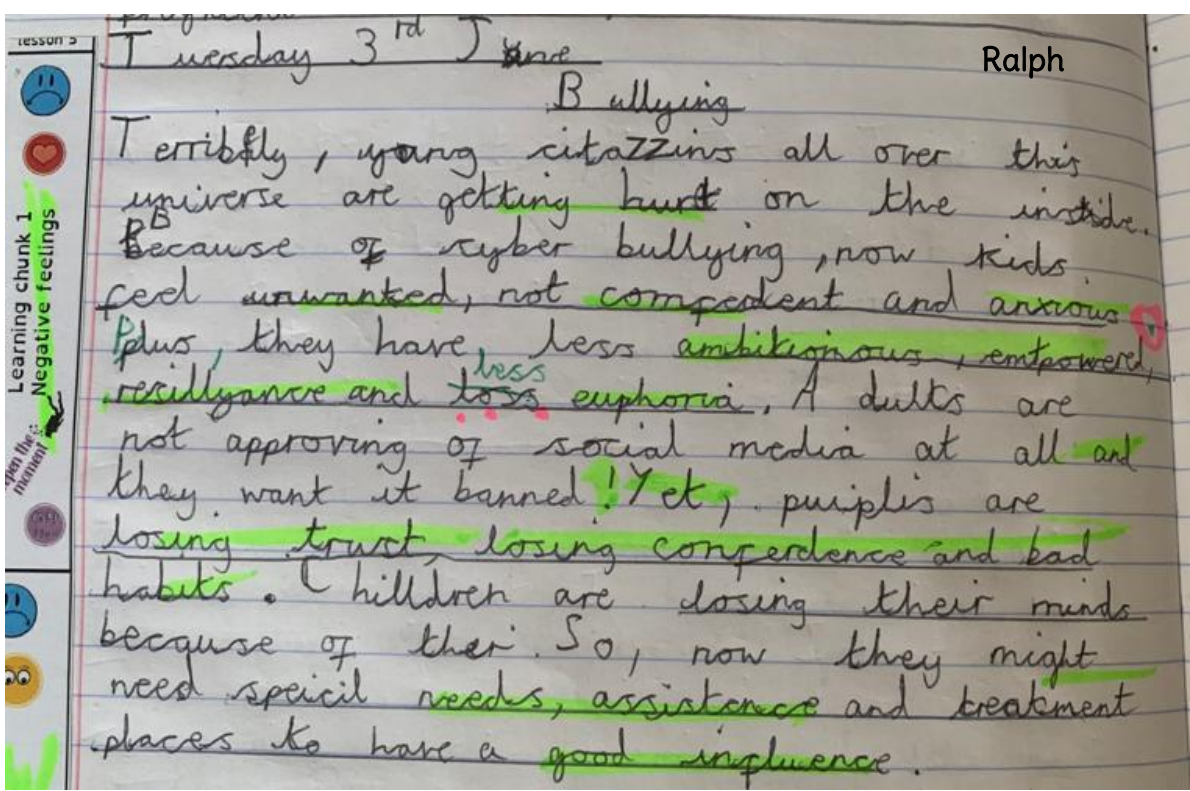 lesson 5
Tuesday 3rd June
Ralph
Bullying
Terribly, young citazzins all over this
universe are getting hurt on the inside.
Because of cyber bullying, now kids
feel unwanted, not compedent and anxious
Plus, they have less ambitionous, emtpowered,
resillyance and less euphoria. Adults are
not approving of social media at all and
they want it banned! Yet, puiplis are
losing trust, losing conferdence and bad
habits. Chilldren are losing their minds
because of ther. So, now they might
need speicil needs, assistence and treatment
places to have a good influence.
Learning chunk 1
Negative feelings
open the
moment